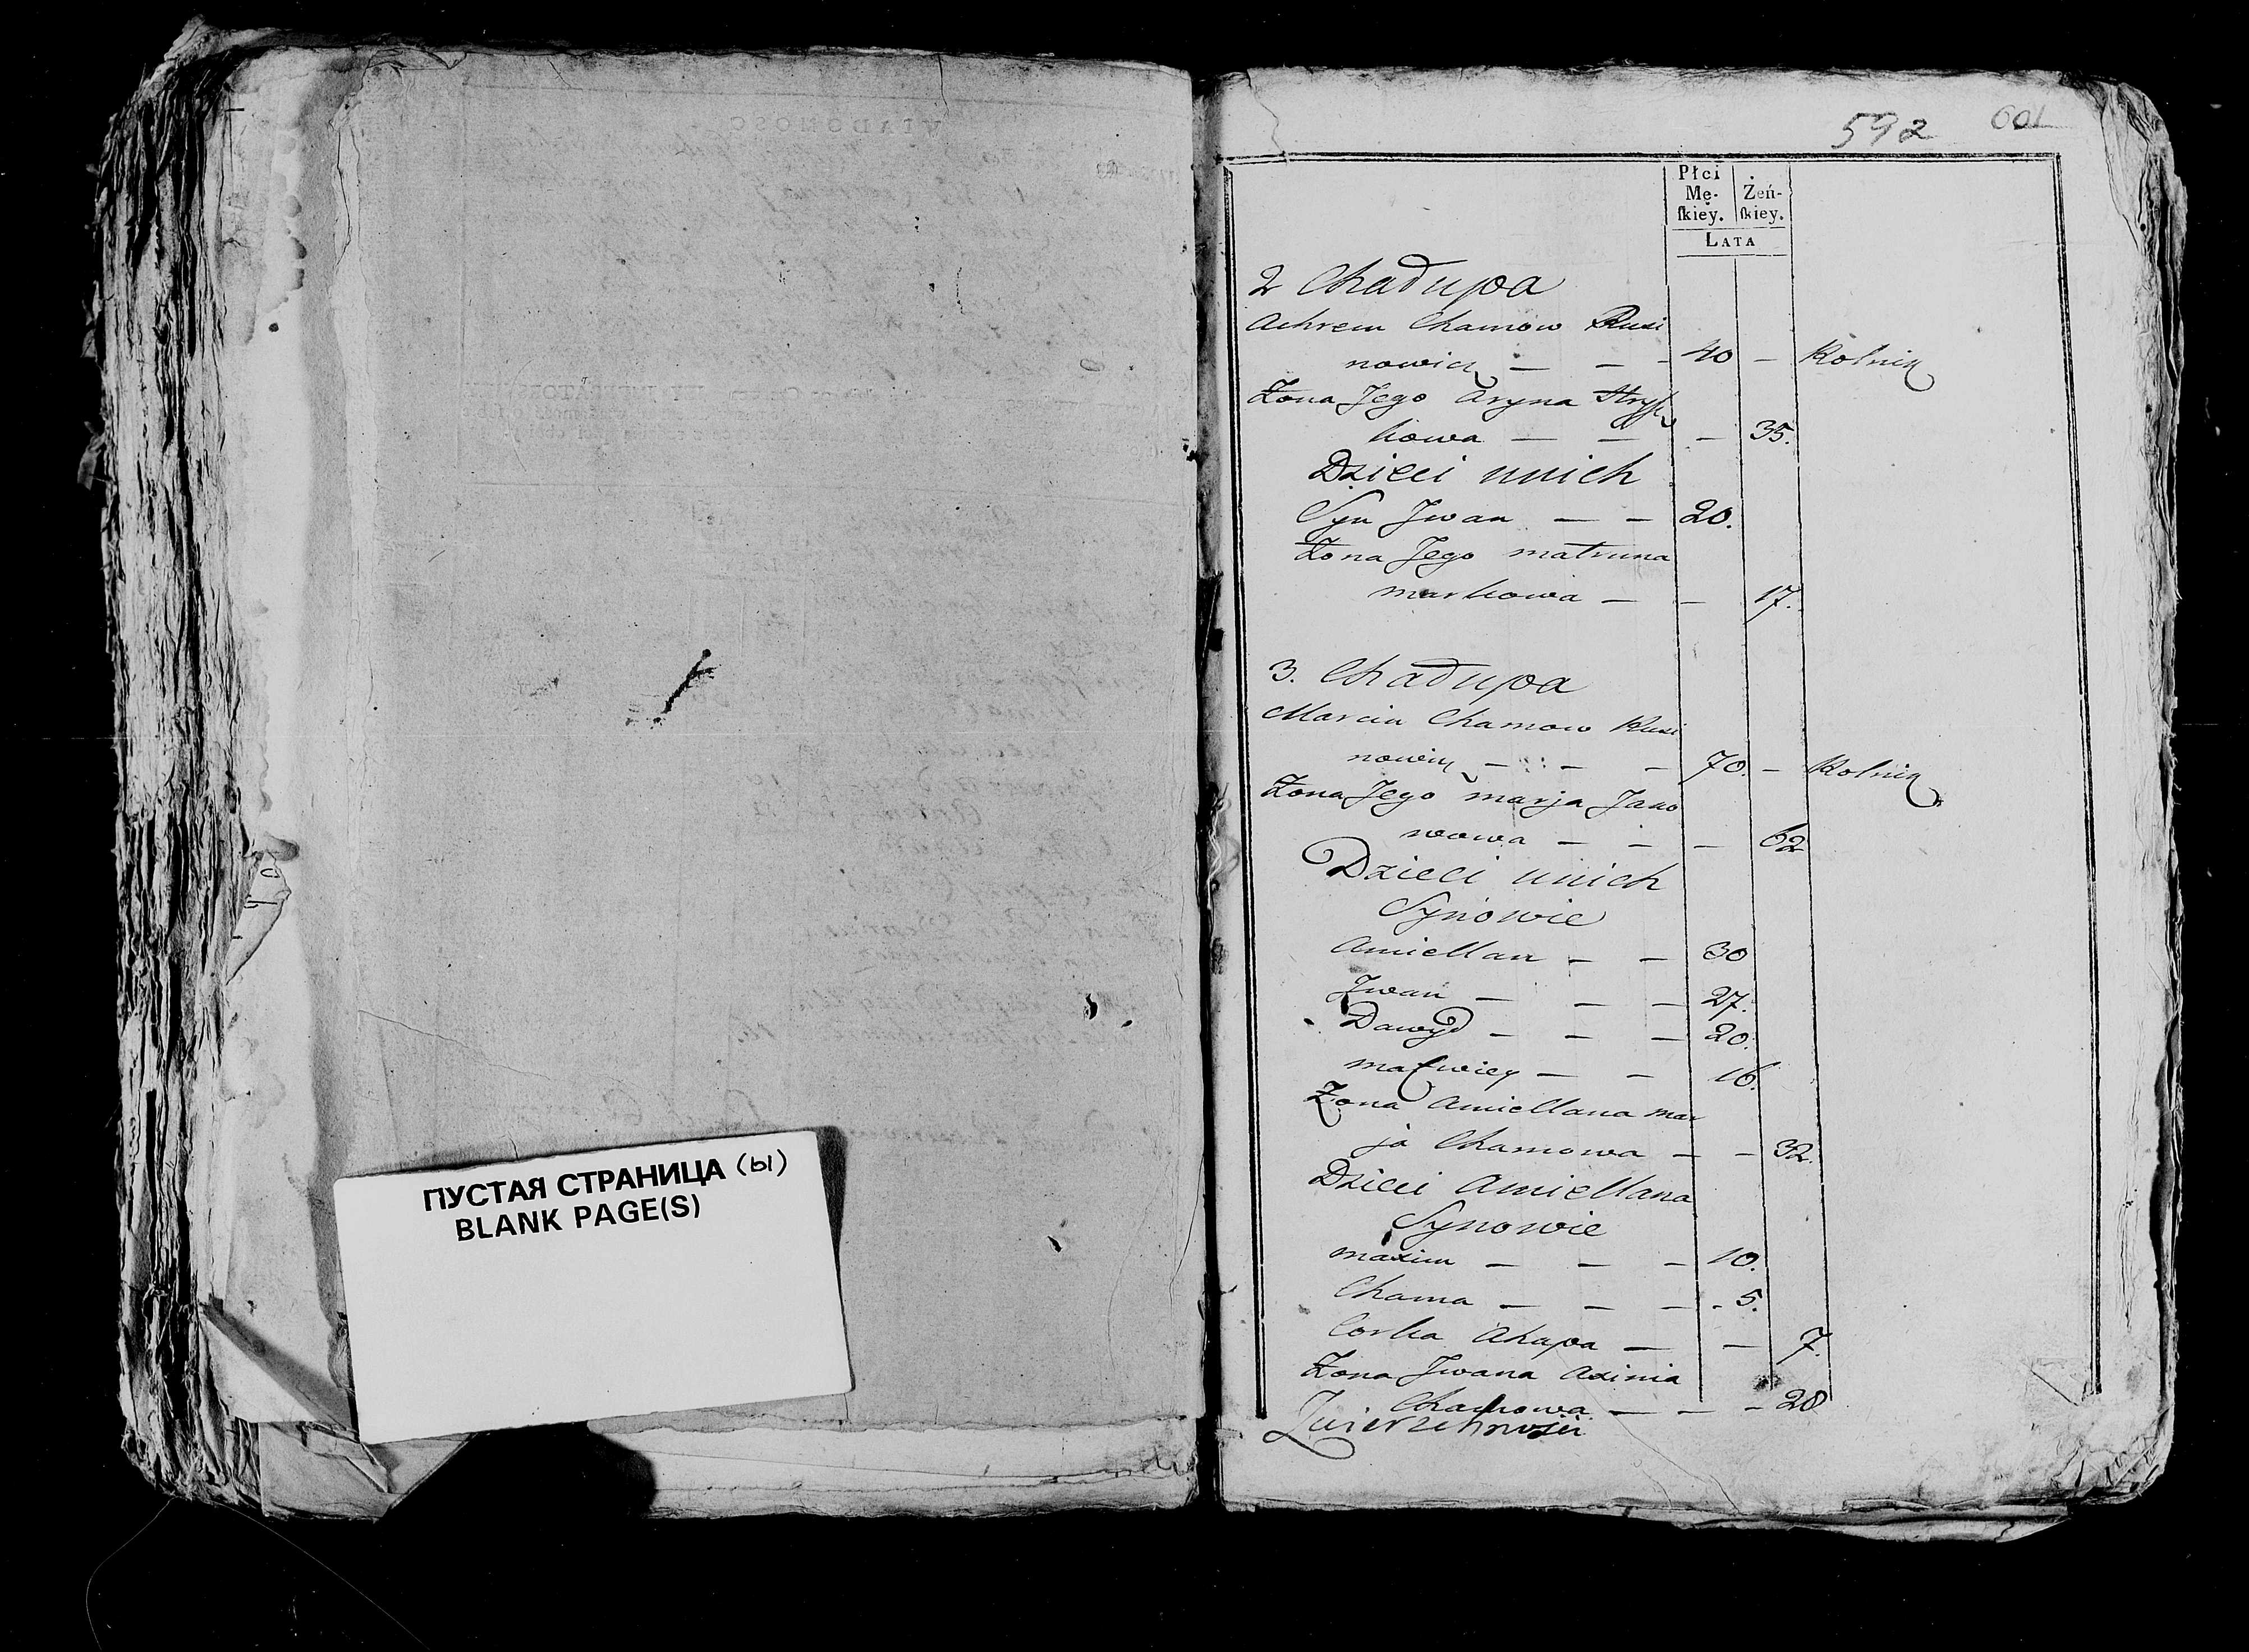 ПУСТАЯ СТРАНИЦА (ы)
BLANK PAGE(S)
592 601
Płci
Mę- Żeń-
ſkiey. ſkiey.
LATA
2 Chadupa
Achrem Chamow Rusi
nowicz — — - 40 — Rolnik
Żona Jego Aryna
kowa — — — 35.
Dzieci unich
Syn Jwan — — 20.
Żona Jego matruna
markowa — — 17.
3. Chadupa
Marcin Chamow Rusi
nowicz — — — 70. — Rolnik
Żona Jego marja Jano
wowa — — — 62
Dzieci unich
Synowie
Amiellan — — 30
Jwan — — — 27.
Dawyd — — — 20.
matwiey — — 16.
Żona Amiellana mar
ja Chamowa — — 32.
Dzieci Amiellana
Synowie
maxim — — — 10.
Chama — — — - 5.
Corka Ahapa — — 7.
Żona Jwana Axinia
Chamowa — — — 28
Zwierzchnosci